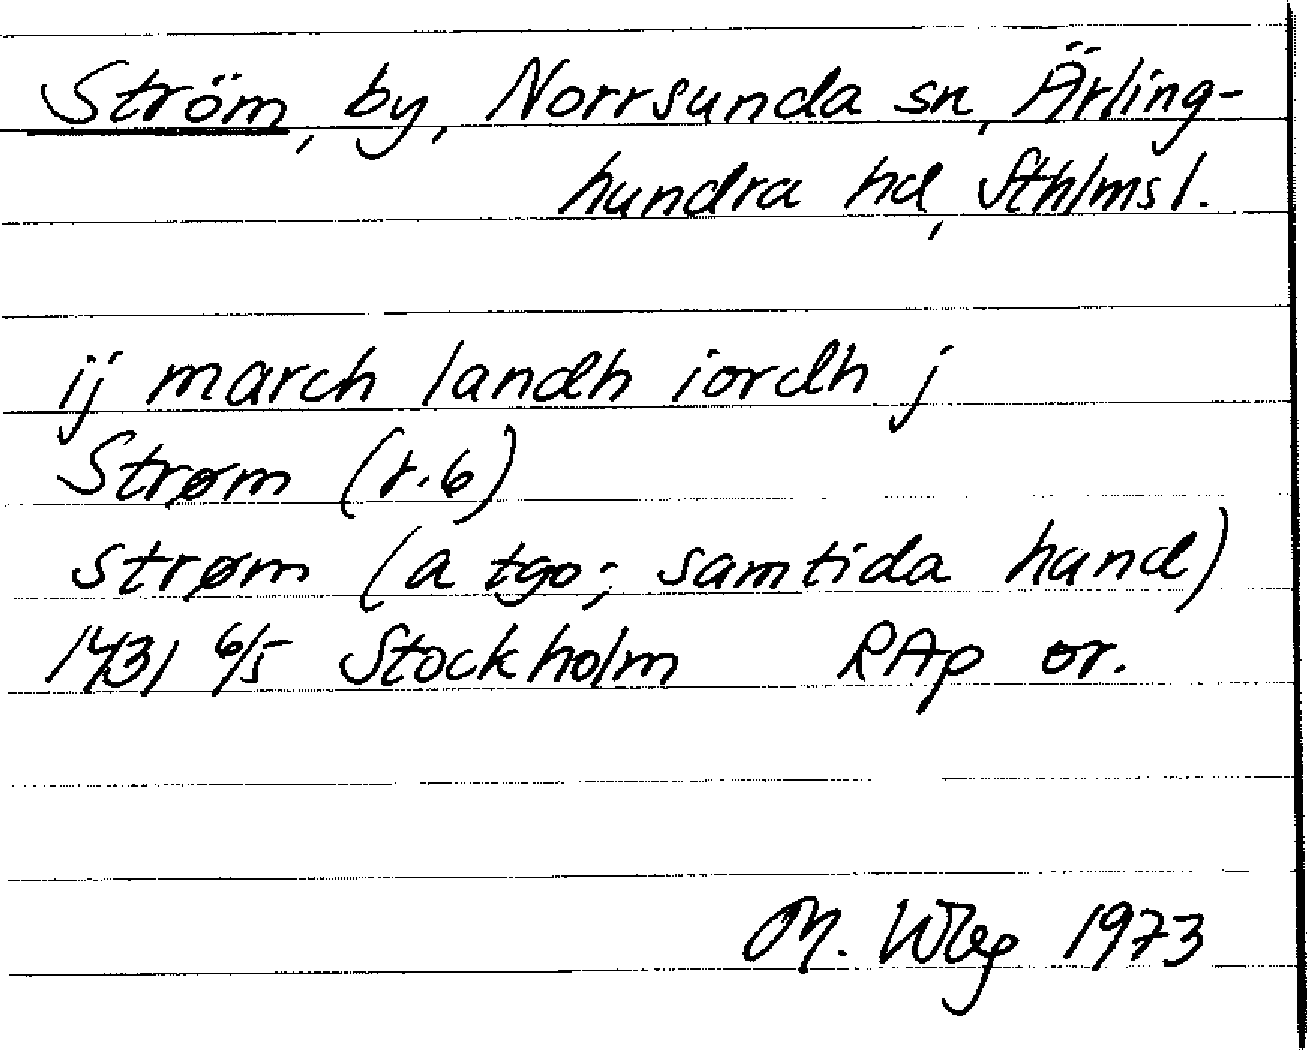 Ström, by, Norrsunda sn, Ärling-
hundra hd, Sthlms l.
ij march landh iordh j
Strøm (r. 6)
strøm (a tgo; samtida hand)
1431 6/5 Stockholm RAp or.
M. Wbg 1973